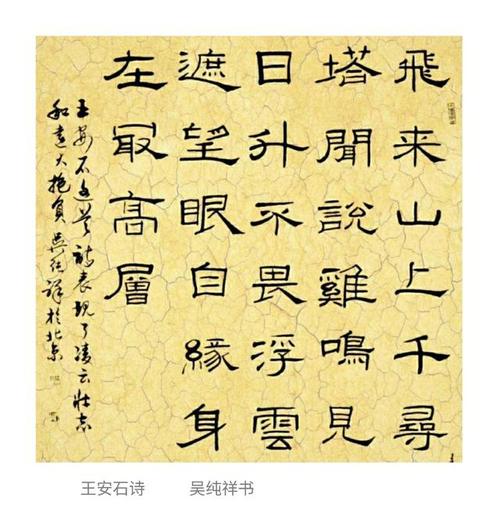 飛来山上千尋
塔聞說雞鳴見
日升不畏浮雲
遮望眼自緣身
在最高層
王安石这首诗表现了凌云壮志
和远大抱负吴纯祥於北京
王安石诗 吴纯祥书